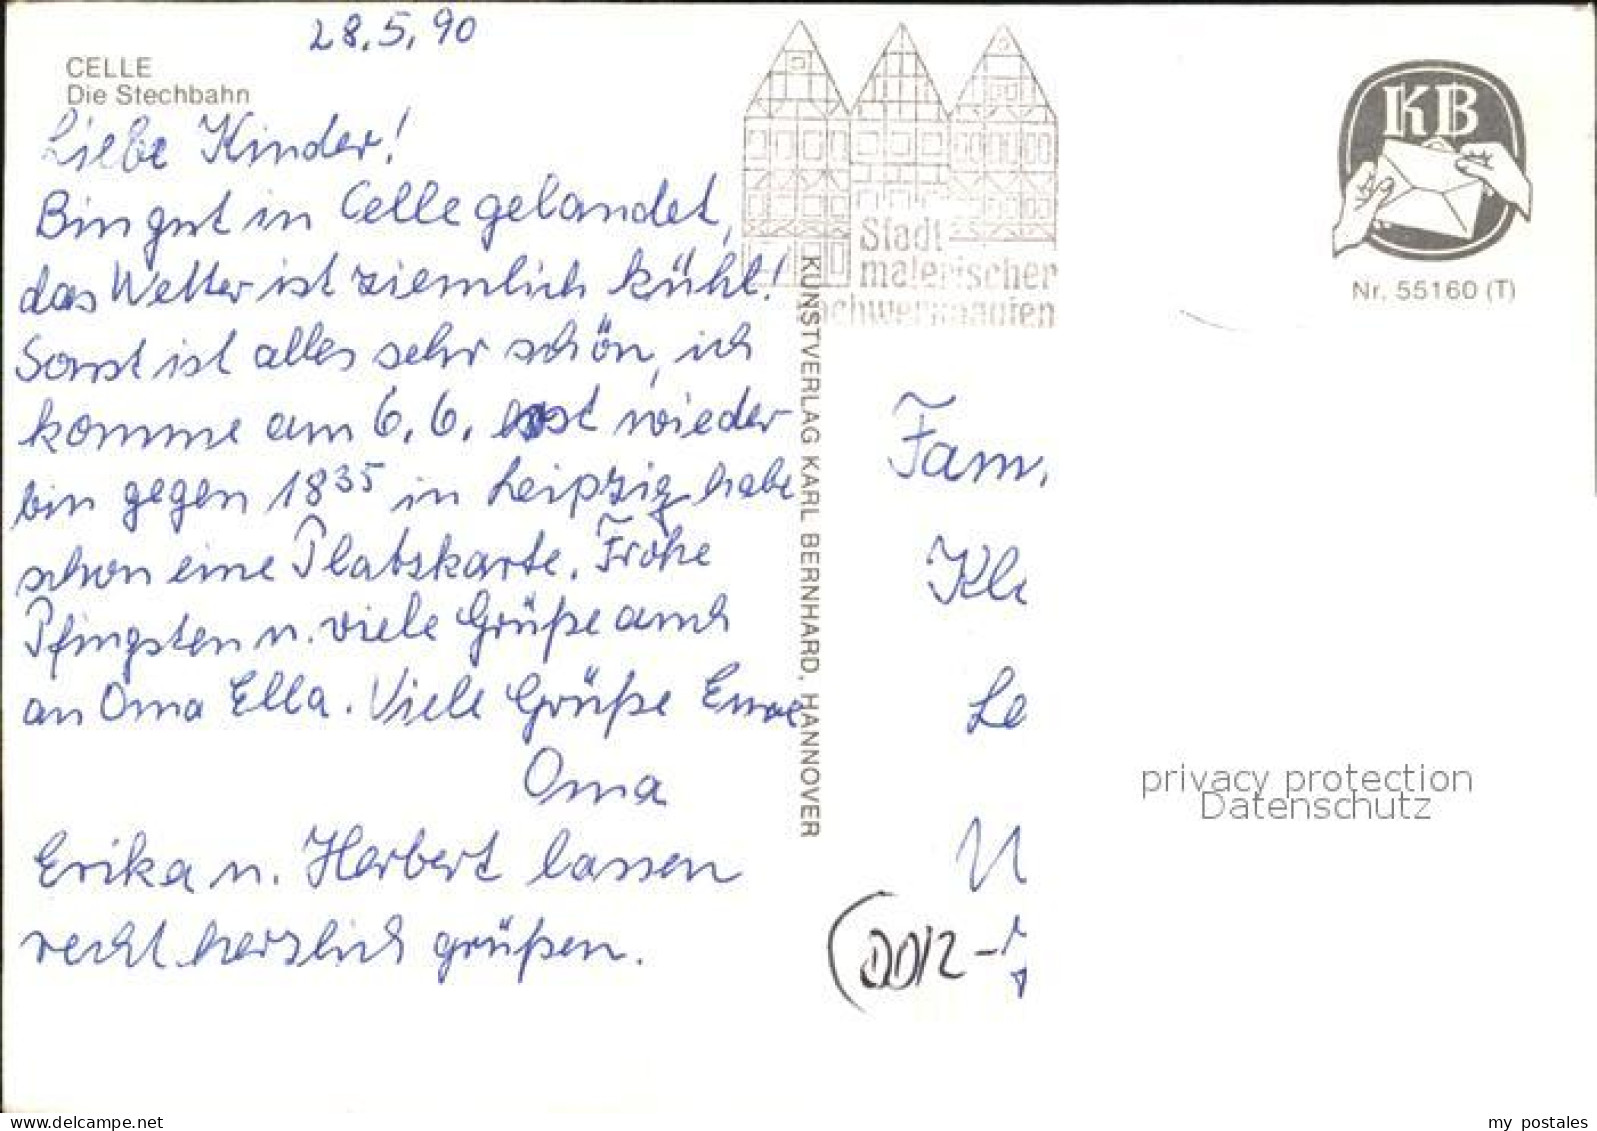 28.5.90
CELLE
Die Stechbahn
Liebe Kinder!
Bin gut in Celle gelandet,
das Wetter ist ziemlich kühl!
Sonst ist alles sehr schön, ich
komme am 6.6. erst wieder
bin gegen 18³⁵ in Leipzig habe
schon eine Platzkarte. Frohe
Pfingsten u. viele Grüße auch
an Oma Ella. Viele Grüße Eure
Oma
Erika u. Herbert lassen
recht herzlich grüßen.
KUNSTVERLAG KARL BERNHARD, HANNOVER
Stadt
malerischer
KB
Nr. 55160 (T)
Fam.
Kl
Le
privacy protection
Datenschutz
delcampe.net
my postales